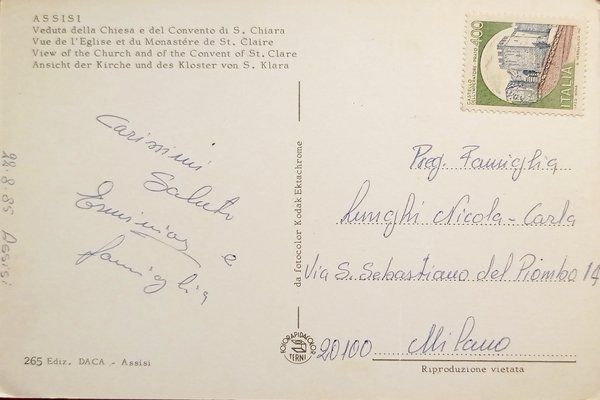 ASSISI
Veduta della Chiesa e del Convento di S. Chiara
Vue de l'Eglise et du Monastére de St. Claire
View of the Church and of the Convent of St. Clare
Ansicht der Kirche und des Kloster von S. Klara
Carissimi
Saluti
e
famiglia
22.8.85 Assisi
265 Ediz. DACA - Assisi
da fotocolor Kodak Ektachrome
ROTORAPIDACOLOR
TERNI
CASTELLO
DELL'IMPERATORE. PRATO
400
ITALIA
Preg. Famiglia
Lunghi Nicola-Carla
Via S. Sebastiano del Piombo 14
20100 Milano
Riproduzione vietata